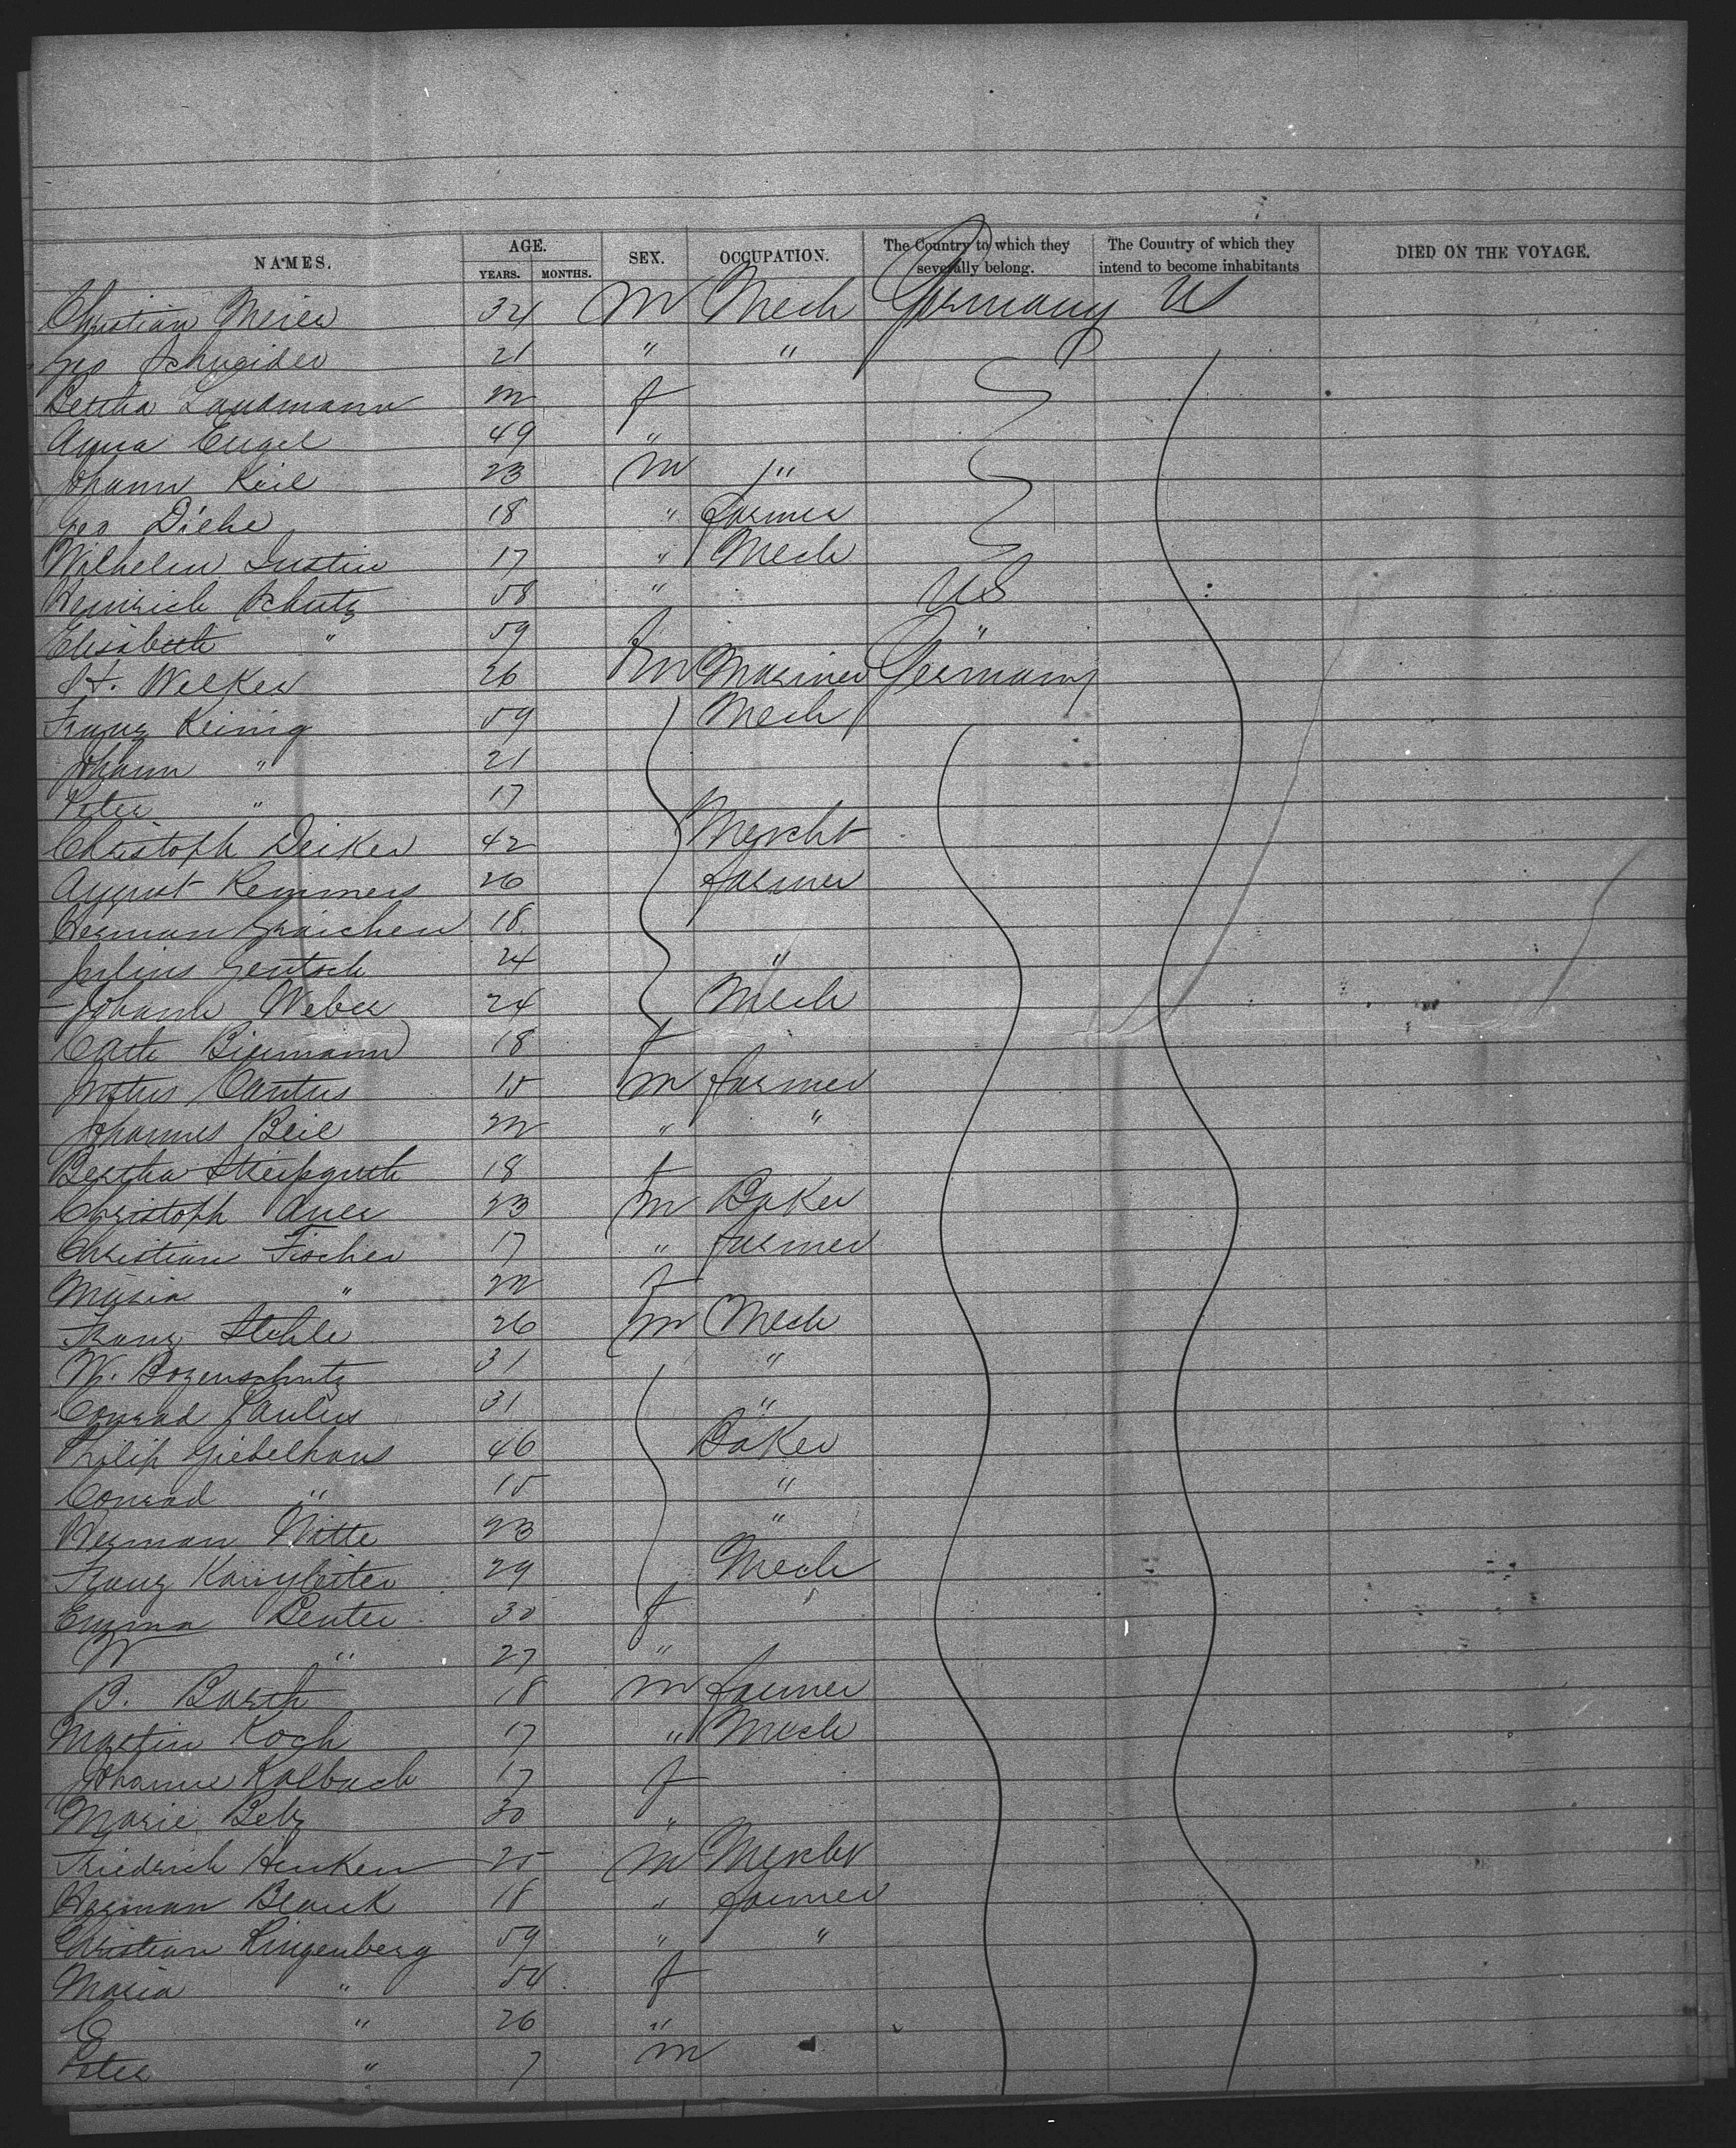 NAMES. AGE. YEARS. MONTHS. SEX. OCCUPATION. The Country to which they severally belong. The Country of which they intend to become inhabitants DIED ON THE VOYAGE.
Christian Meier 34 m Mech Germany US
Geo Schneider 21 " "
Bertha Landmann 22 f
Anna Engel 49 "
Johann Keil 23 m "
Geo Diehe 18 " farmer
Wilhelm Justin 17 " Mech
Heinrich Schutz 58 " US
Elisabeth " 59 f "
H. Welker 26 m Mariner Germany
Franz Keinig 59 Mech
Johann " 21
Peter " 17
Christoph Deiker 42 Mercht
August Remmers 26 farmer
Herman Graichen 18
Julius Gentsch 24 "
Johann Weber 24 Mech
Cath Biermann 18 f
Justus Cantus 15 m farmer
Johannes Beil 22 " "
Bertha 18 f
Christoph Auer 23 m Baker
Christian Fischer 17 " farmer
Maria " 22 f
Franz Stehle 26 m Mech
W. Bogenschutz 31 "
Conrad Paulus 31 "
Philip Giebelhaus 46 Baker
Conrad " 15 "
Herman Witte 23 "
Franz 29 Mech
Emma Penter 30 f
W " 27 "
B. Barth 18 m farmer
Martin Koch 17 " Mech
Johanne Kalbach 17 f
Marie Belz 30 "
Friedrich Henken 25 m Mercht
Herman Blank 18 " farmer
Christian Ringenberg 59 " "
Maria " 54 f
C " 26 "
Peter " 7 m